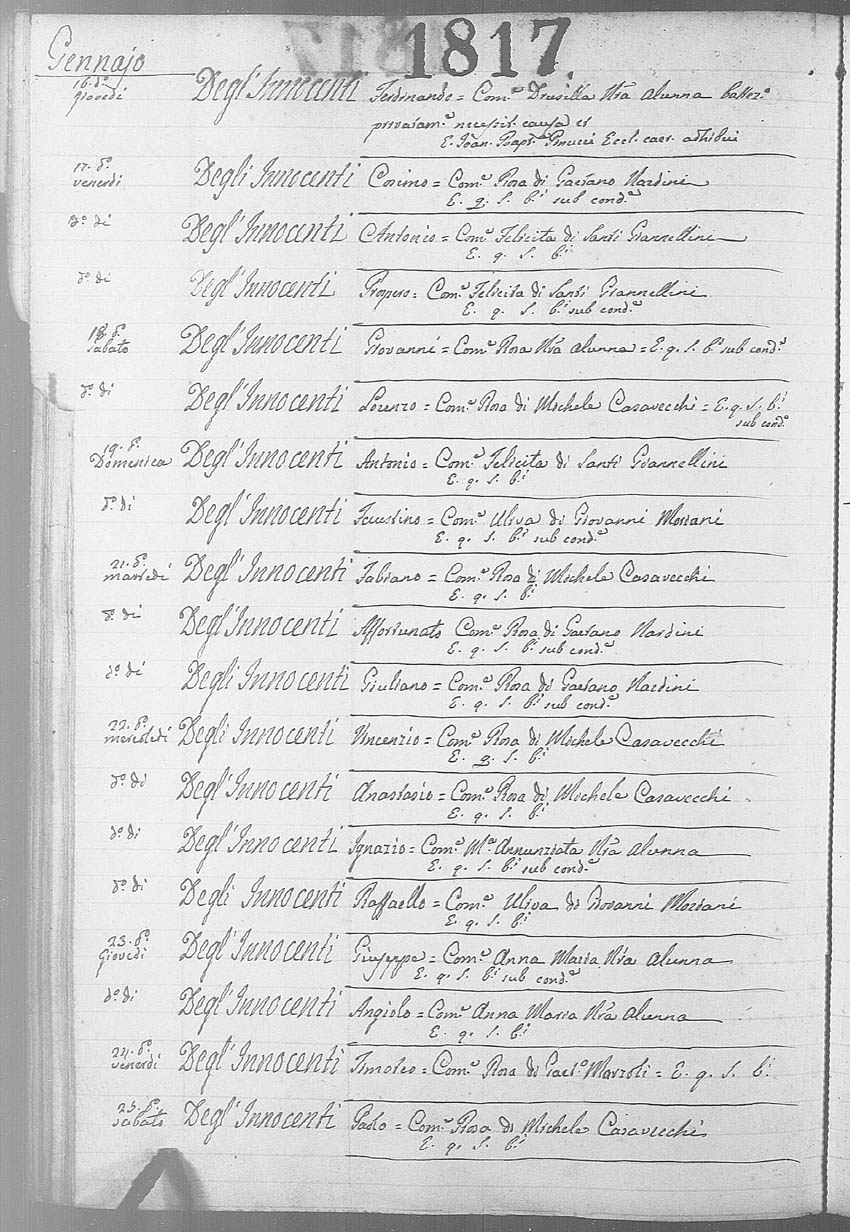 1817.
Gennajo
16. do.
giovedi
Degl'Innocenti Ferdinando = Com.e Drusilla Nra Alunna battez.o
privatam.e necessit. causa et
E. Ioan. Bapt. Pinucci Eccl. caer. adhibui
17. do.
venerdi
Degli Innocenti Cosimo = Com.e Rosa di Gaetano Nardini
E. q. S. b.i sub cond.e
do. di Degl'Innocenti Antonio = Com.e Felicita di Santi Giannellini
E. q. S. b.i
do. di Degl'Innocenti Prospero = Com.e Felicita di Santi Giannellini
E. q. S. b.i sub cond.e
18. do.
Sabato
Degl'Innocenti Giovanni = Com.e Rosa Nra Alunna = E. q. S. b.i sub cond.e
do. di Degl'Innocenti Lorenzo = Com.e Rosa di Michele Casavecchi = E. q. S. b.i
sub cond.e
19. do.
Domenica Degl'Innocenti Antonio = Com.e Felicita di Santi Giannellini
E. q. S. b.i
do. di Degl'Innocenti Faustino = Com.e Uliva di Giovanni Moriani
E. q. S. b.i sub cond.e
21. do.
martedi Degl'Innocenti Fabiano = Com.e Rosa di Michele Casavecchi
E. q. S. b.i
do. di Degl'Innocenti Affortunato Com.e Rosa di Gaetano Nardini
E. q. S. b.i sub cond.e
do. di Degl'Innocenti Giuliano = Com.e Rosa di Gaetano Nardini
E. q. S. b.i sub cond.e
22. do.
mercoledi Degli Innocenti Vincenzio = Com.e Rosa di Michele Casavecchi
E. q. S. b.i
do. di Degl'Innocenti Anastasio = Com.e Rosa di Michele Casavecchi
E. q. S. b.i
do. di Degl'Innocenti Ignazio = Com.e Ma Annunziata Nra Alunna
E. q. S. b.i sub cond.e
do. di Degli Innocenti Raffaello = Com.e Uliva di Giovanni Moriani
E. q. S. b.i
23. do.
Giovedi Degl'Innocenti Giuseppe = Com.e Anna Maria Nra Alunna
E. q. S. b.i sub cond.e
do. di Degl'Innocenti Angiolo = Com.e Anna Maria Nra Alunna
E. q. S. b.i
24. do.
venerdi Degl'Innocenti Timoteo = Com.e Rosa di Gaet.o Marzoli = E. q. S. b.i
25. do.
sabato Degl'Innocenti Paolo = Com.e Rosa di Michele Casavecchi
E. q. S. b.i